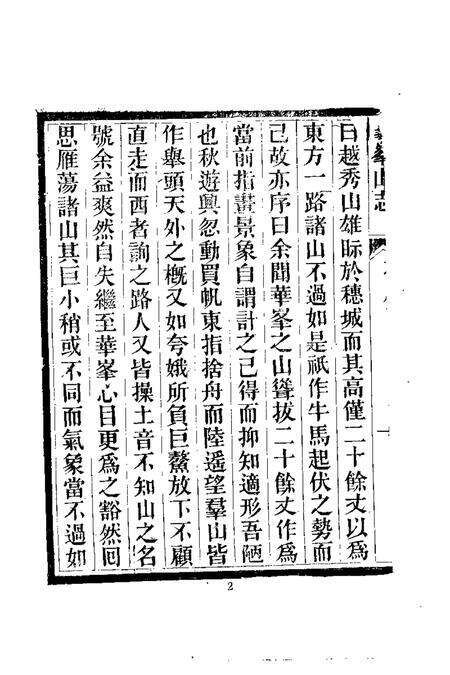 華峯山志
曰越秀山雄眎於穗城而其高僅二十餘丈以爲
東方一路諸山不過如是祇作牛馬起伏之勢而
己故亦序曰余聞華峯之山聳拔二十餘丈作爲
當前指畫景象自謂計之己得而抑知適形吾陋
也秋遊興忽動買帆東指捨舟而陸遥望羣山皆
作舉頭天外之概又如夸娥所負巨鰲放下不顧
直走而西者詢之路人又皆操土音不知山之名
號余益爽然自失繼至華峯心目更爲之豁然囘
思雁蕩諸山其巨小稍或不同而氣象當不過如
2